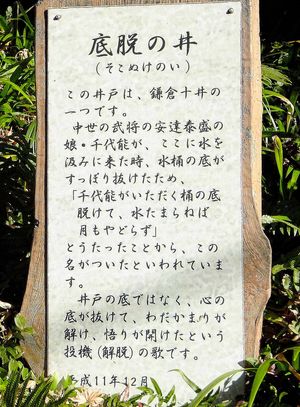 底脱の井
(そこぬけのい)
この井戸は、鎌倉十井の
一つです。
中世の武将の安達泰盛の
娘・千代能が、ここに水を
汲みに来た時、水桶の底が
すっぽり抜けたため、
「千代能がいただく桶の底
脱けて、水たまらねば
月もやどらず」
とうたったことから、この
名がついたといわれていま
す。
井戸の底ではなく、心の
底が抜けて、わだかまりが
解け、悟りが開けたという
投機(解脱)の歌です。
平成11年12月